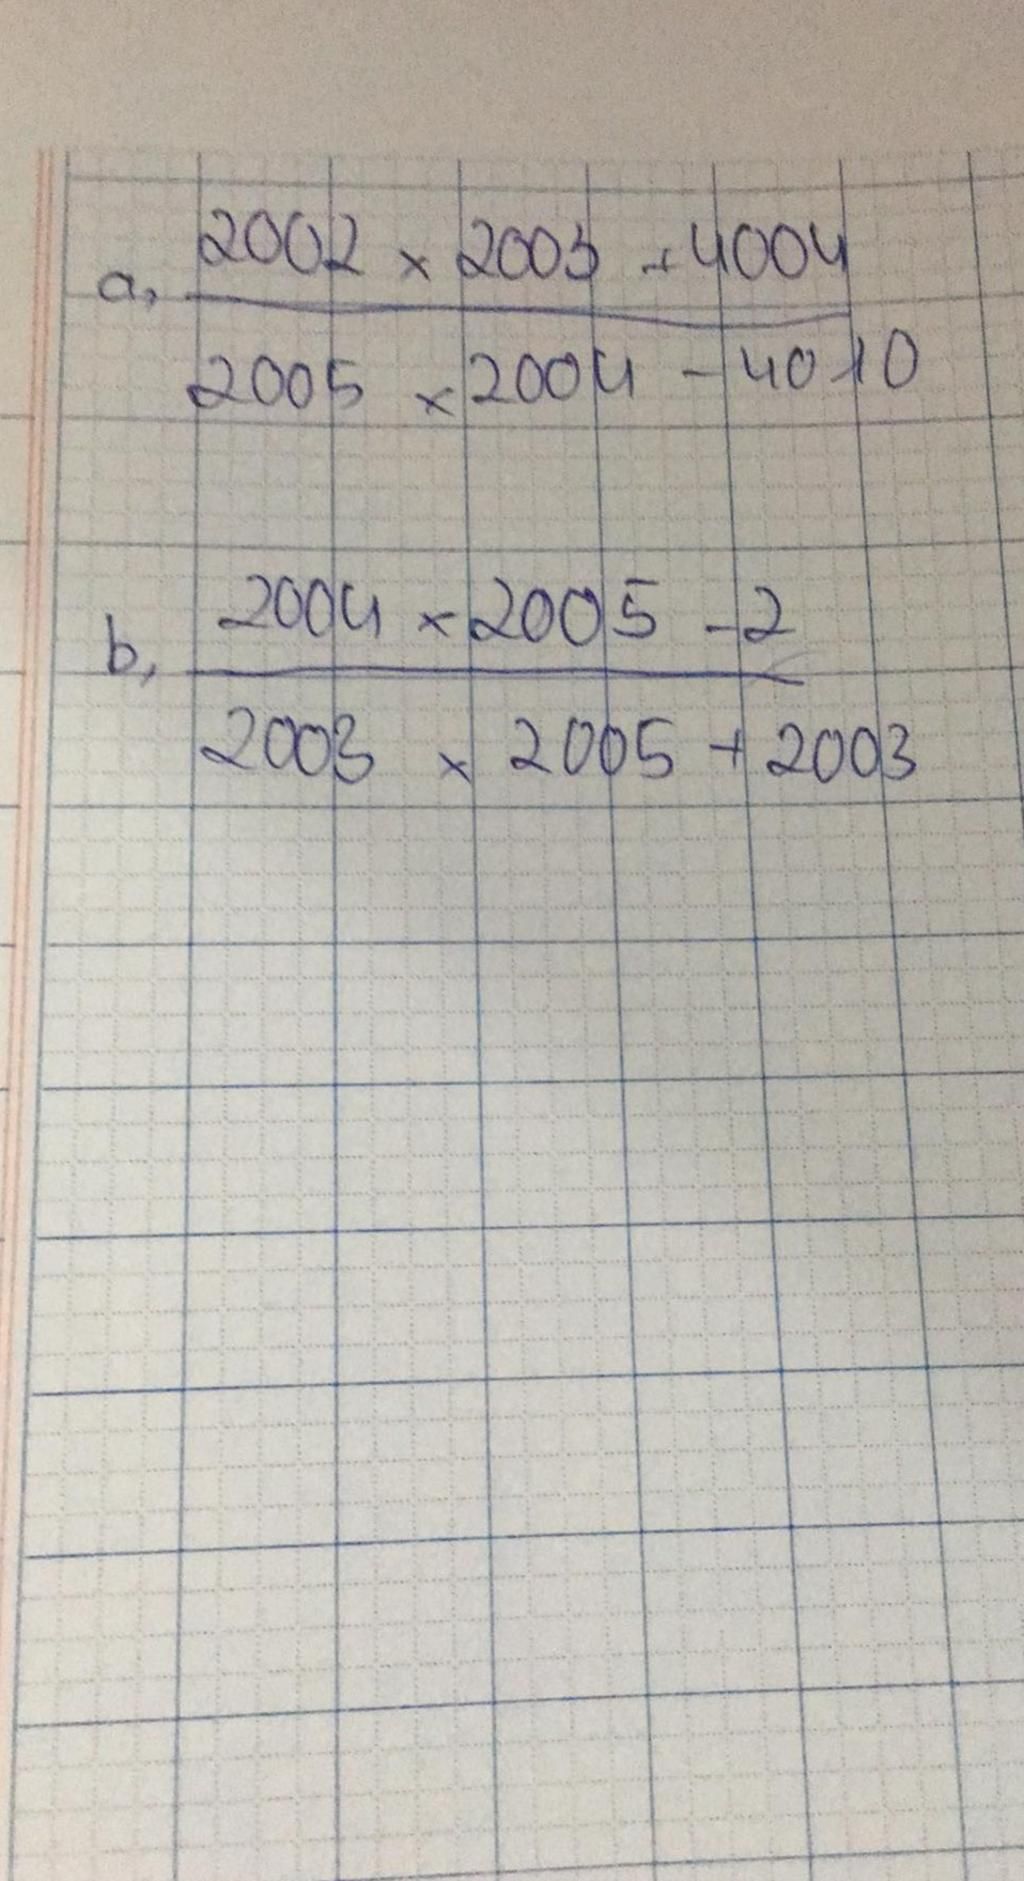 a, 2002 × 2003 + 4004
2005 × 2004 - 4010
b, 2004 × 2005 - 2
2003 × 2005 + 2003